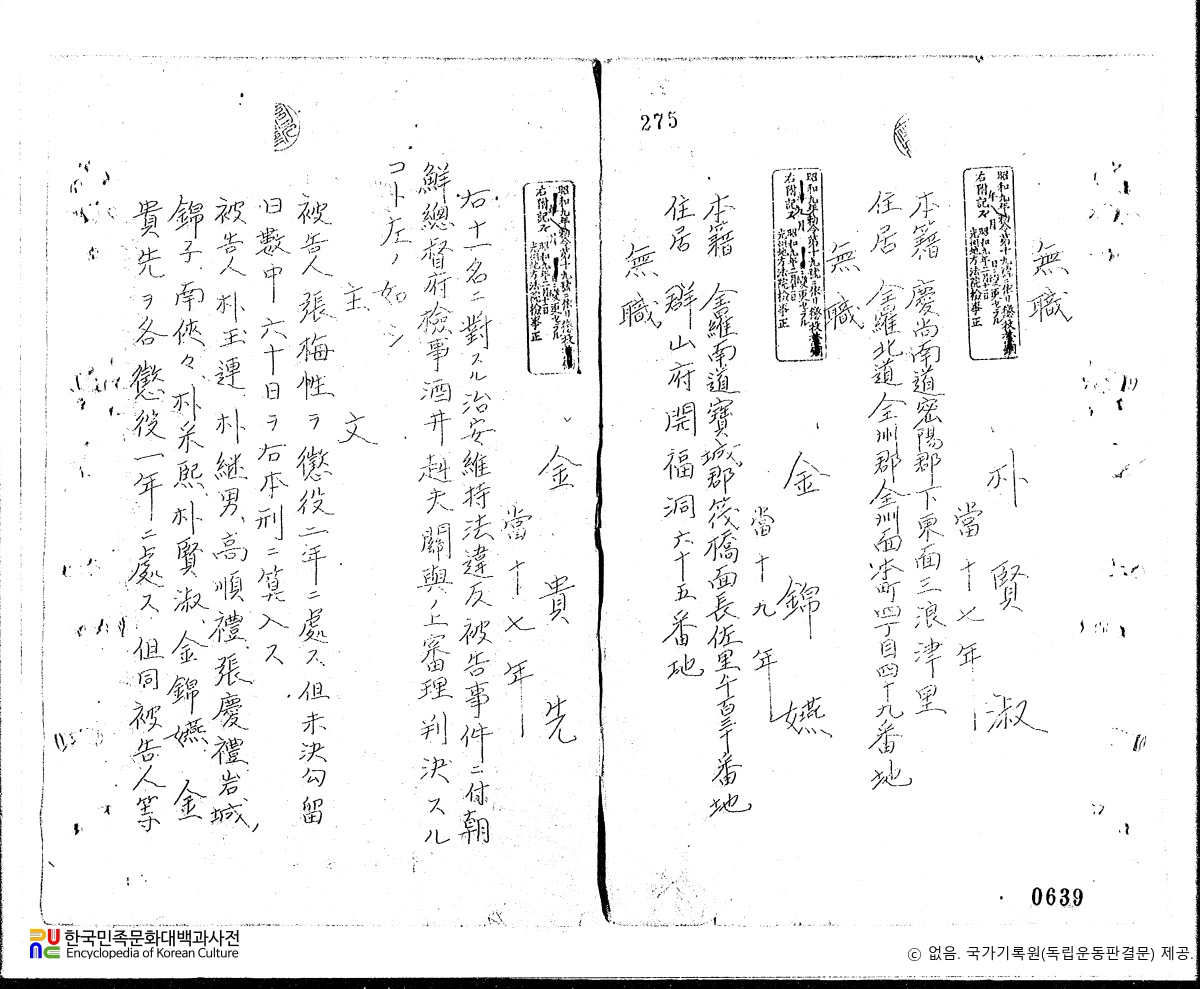 275
無職
朴賢淑
當十七年
本籍 慶尚南道密陽郡下東面三浪津里
住居 全羅北道全州郡全州面本町四丁目四十九番地
無職
金錦嬿
當十九年
本籍 全羅南道寶城郡筏橋面長佐里
住居 群山府開福洞六十五番地
無職
金貴先
當十七年
右十一名ニ對スル治安維持法違反被告事件ニ付朝
鮮總督府檢事酒井赳夫關與ノ上審理判決スル
コト左ノ如シ
主文
被告人張梅性ヲ懲役二年ニ處ス但未決勾留
日數中六十日ヲ右本刑ニ算入ス
被告人朴玉連、朴継男、高順禮、張慶禮、岩城
錦子、南俠々、朴采熙、朴賢淑、金錦嬿、金
貴先ヲ各懲役一年ニ處ス但同被告人等
0639
한국민족문화대백과사전
Encyclopedia of Korean Culture
ⓒ 없음. 국가기록원(독립운동판결문) 제공.